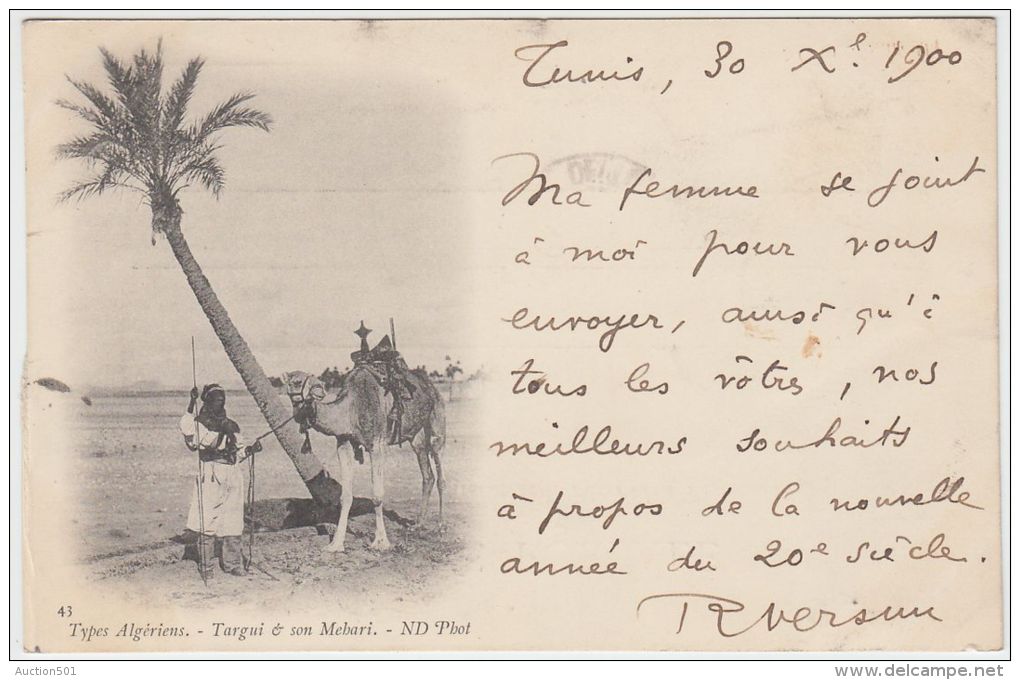 Tunis, 30 Xe. 1900
Ma femme se joint
à moi pour vous
envoyer, ainsi qu'à
tous les vôtres, nos
meilleurs souhaits
à propos de la nouvelle
année du 20e siècle.
43
Types Algériens. - Targui & son Mehari. - ND Phot
Auction501
www.delcampe.net